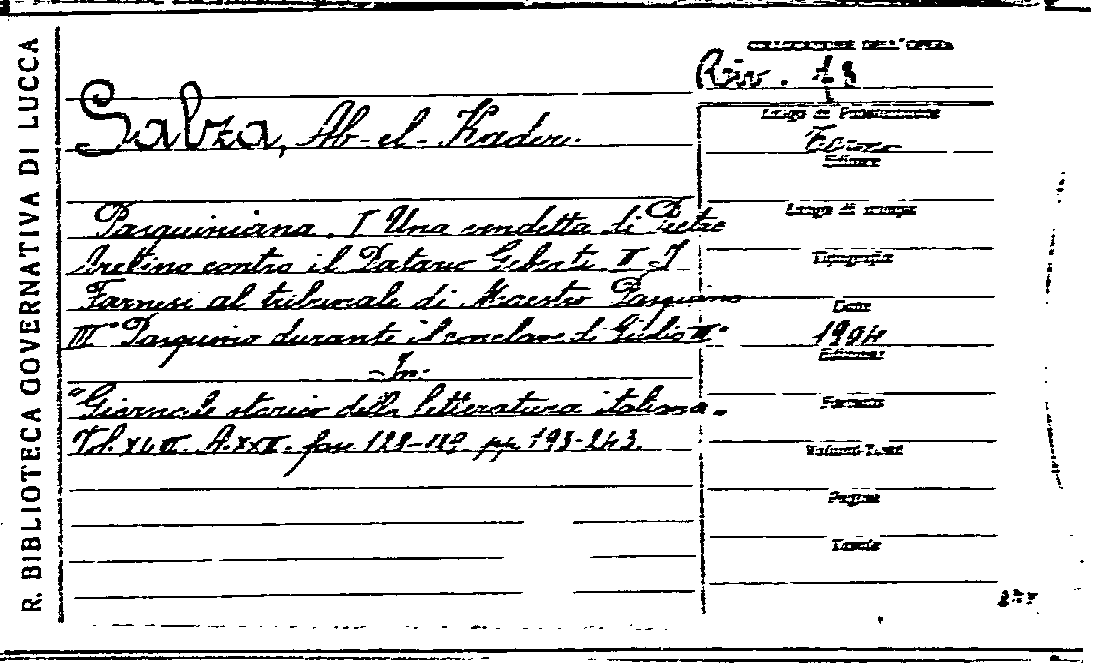 R. BIBLIOTECA GOVERNATIVA DI LUCCA
COLLOCAZIONE DELL'OPERA
Riv. 13
Salza, Ab-el-Kader.
Luogo di Pubblicazione
Editore
Pasquiniana. I Una vendetta di Pietro
Luogo di stampa
Aretino contro il Datario Giberti II I
Tipografia
Farnesi al tribunale di Maestro Pasquino
Data
III Pasquino durante il conclave di Giulio III
1904
Edizione
-In-
"Giornale storico della letteratura italiana.
Formato
Vol. XLIII. A. XXII. fasc 128-129. pp. 193-243.
Volumi-Tomi
Pagine
Tavole